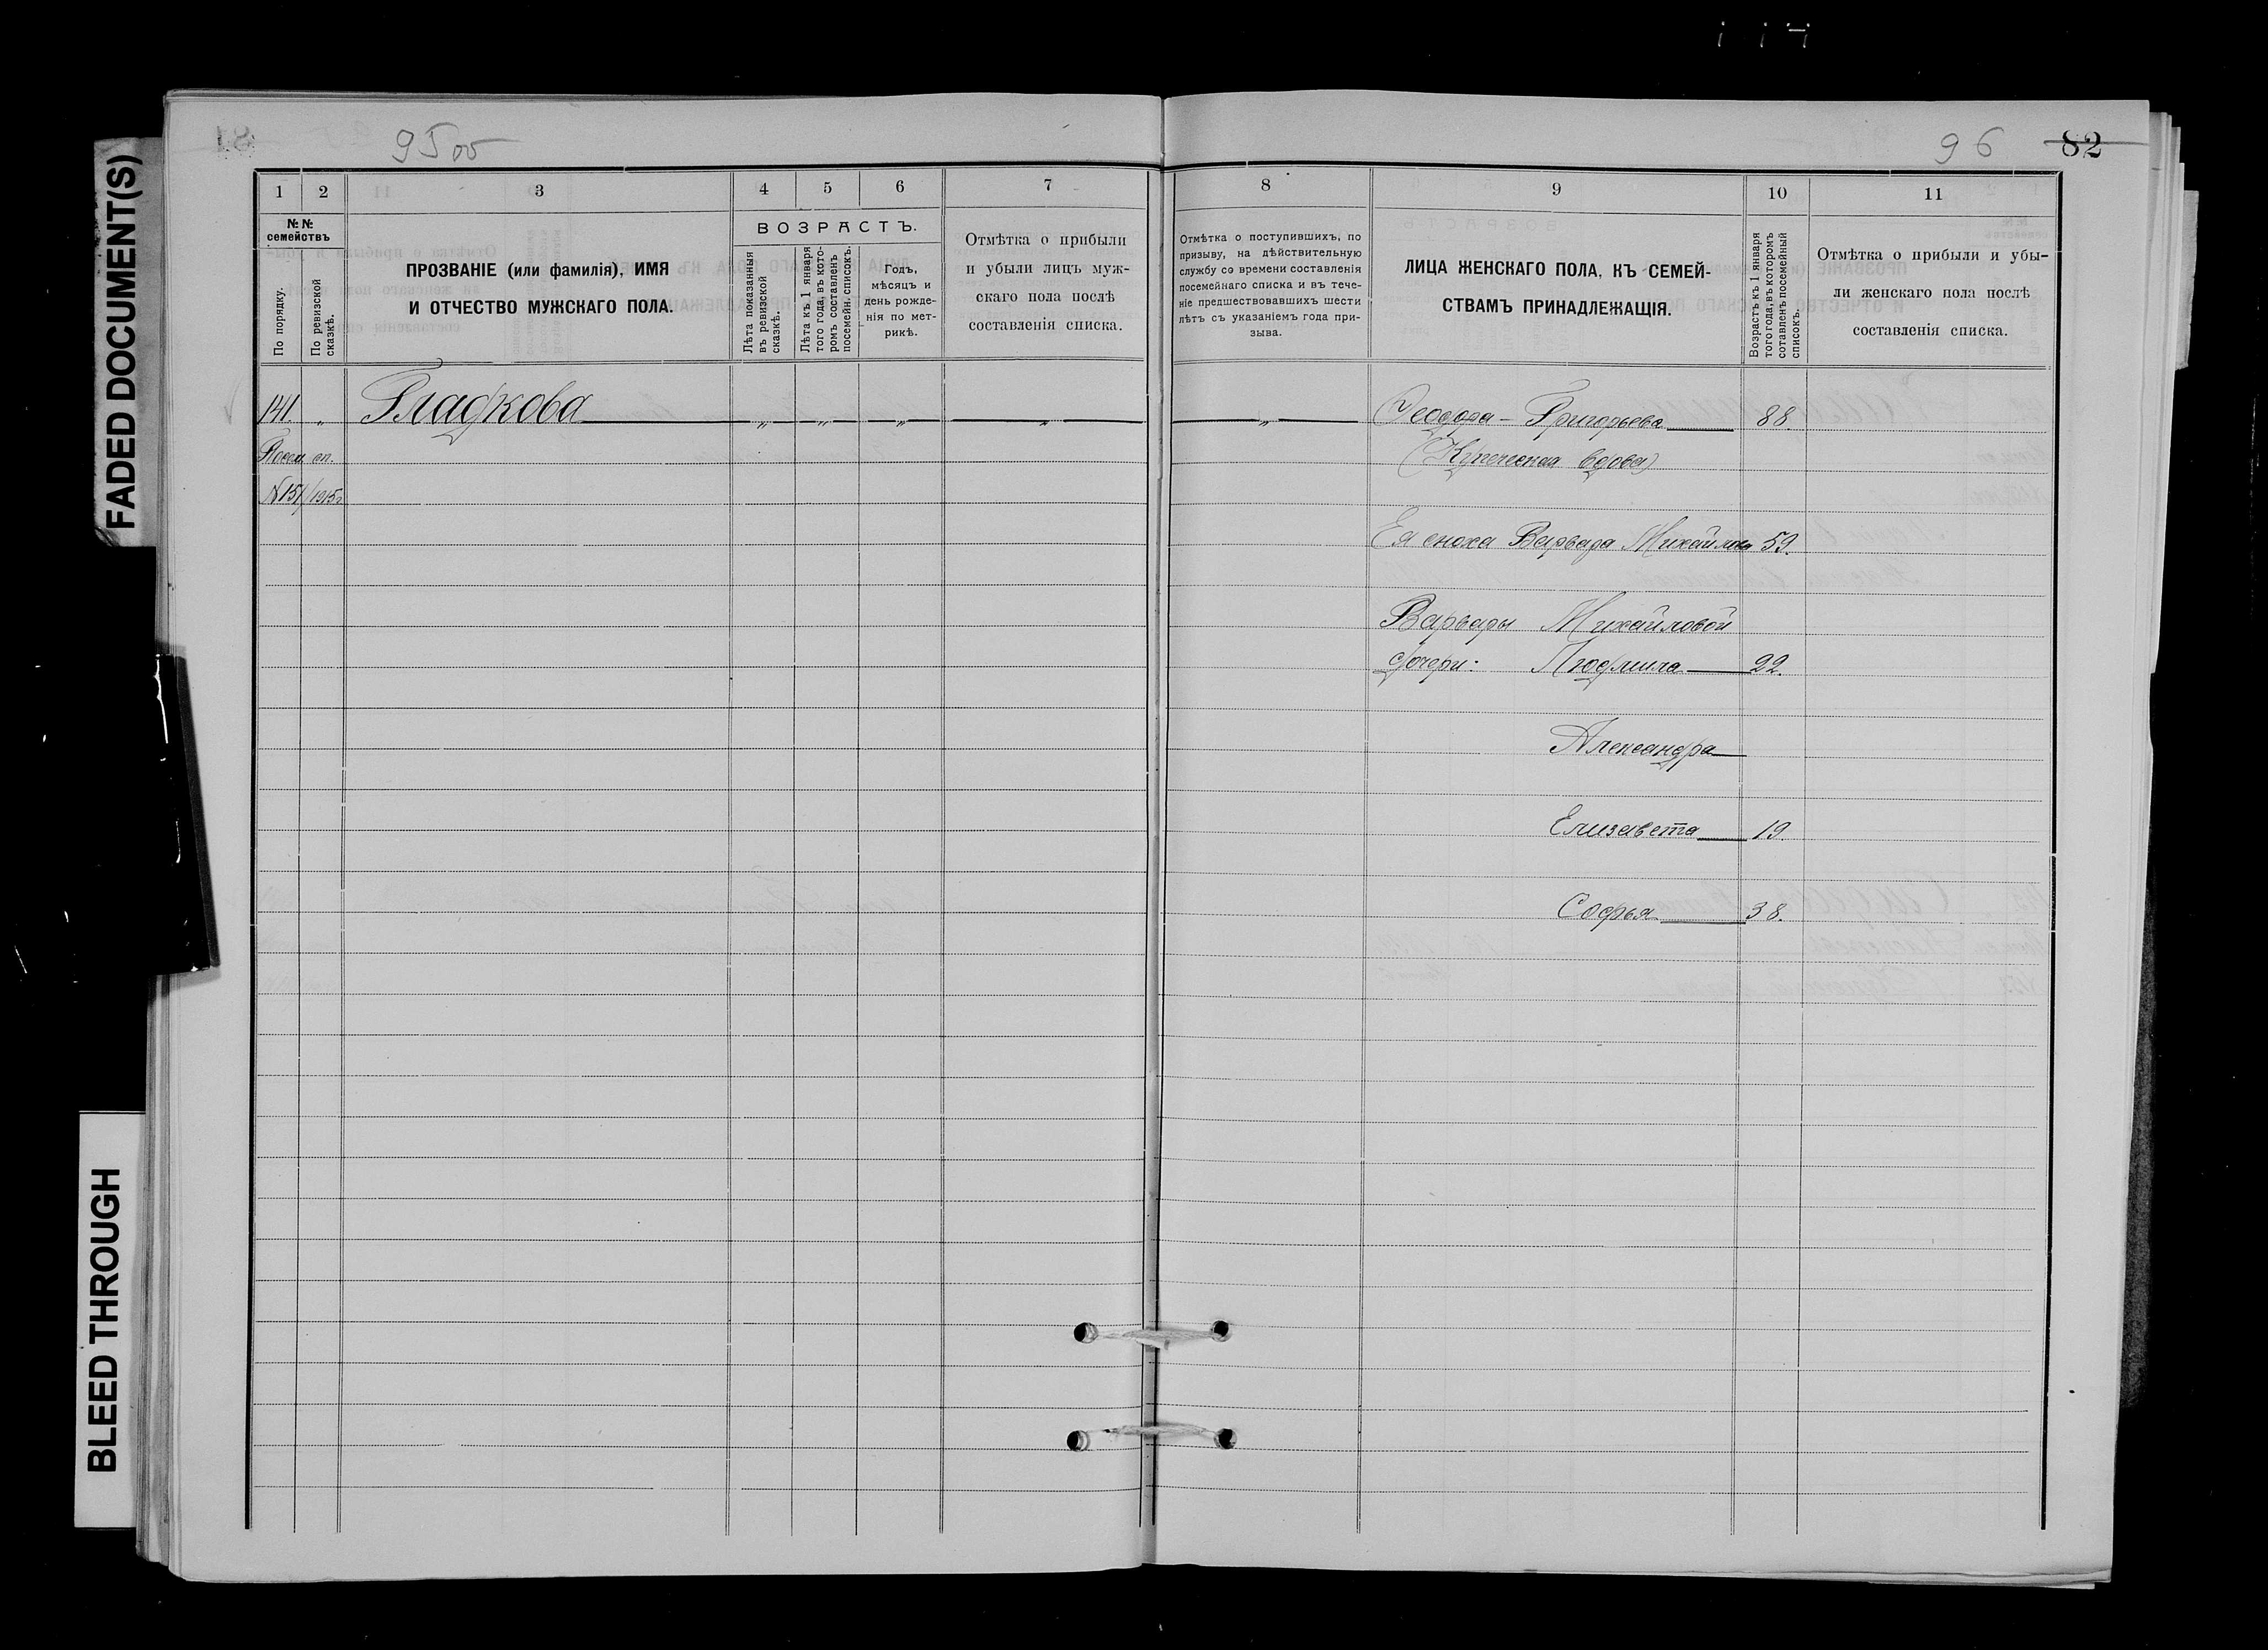 FADED DOCUMENT(S)
BLEED THROUGH
95 об
96 82
1 2 3 4 5 6 7
№№ семействъ
По порядку.
По ревизской сказкѣ.
ПРОЗВАНІЕ (или фамилія), ИМЯ
И ОТЧЕСТВО МУЖСКАГО ПОЛА.
ВОЗРАСТЪ.
Лѣта показанныя
въ ревизской
сказкѣ.
Лѣта къ 1 января
того года, въ кото-
ромъ составленъ
посемейн. списокъ.
Годъ,
мѣсяцъ и
день рожде-
нія по мет-
рикѣ.
Отмѣтка о прибыли
и убыли лицъ муж-
скаго пола послѣ
составленія списка.
141. " Гладкова " " " "
Посем сп.
№ 151/1915г
8 9 10 11
Отмѣтка о поступившихъ, по
призыву, на дѣйствительную
службу со времени составленія
посемейнаго списка и въ тече-
ніе предшествовавшихъ шести
лѣтъ съ указаніемъ года при-
зыва.
ЛИЦА ЖЕНСКАГО ПОЛА, КЪ СЕМЕЙ-
СТВАМЪ ПРИНАДЛЕЖАЩІЯ.
Возрастъ къ 1 января
того года, въ которомъ
сотавленъ посемейный
списокъ.
Отмѣтка о прибыли и убы-
ли женскаго пола послѣ
составленія списка.
" Ѳеодора - Григорьева 88.
(Купеческая вдова)
Ея сноха Варвара Михайлова 59.
Варвары Михайловой
дочери: Людмила 22.
Александра
Елизавета 19.
Софья 38.